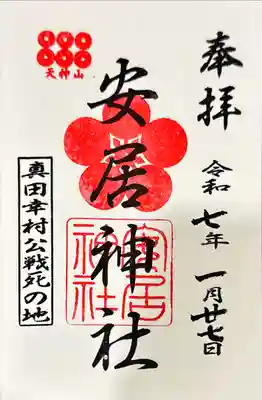 奉拝
令和七年一月廿七日
安居神社
安居神社
天神山
真田幸村公戦死の地